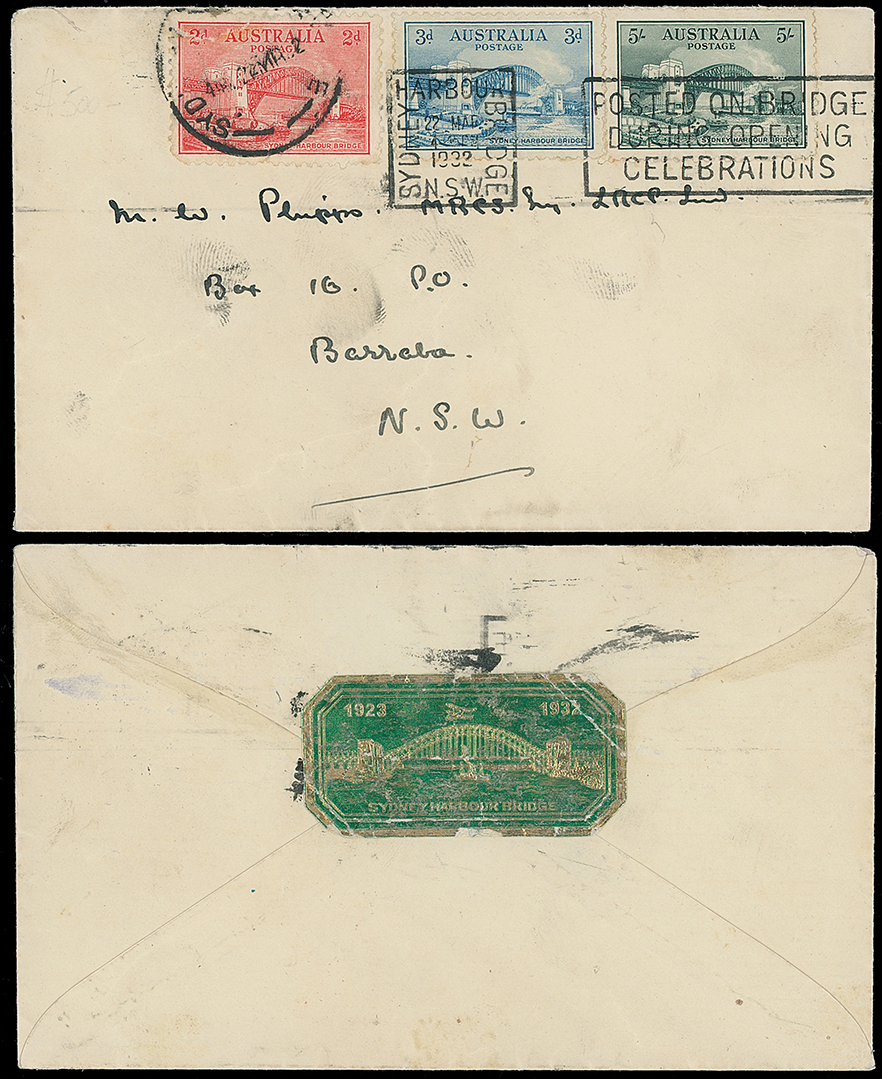 2d AUSTRALIA 2d
POSTAGE
SYDNEY HARBOUR BRIDGE
3d AUSTRALIA 3d
POSTAGE
SYDNEY HARBOUR BRIDGE
5/- AUSTRALIA 5/-
POSTAGE
SYDNEY HARBOUR BRIDGE
SYD
SYDNEY
HARBOUR
BRIDGE
22 MAR
1932
N.S.W.
POSTED ON BRIDGE
DURING OPENING
CELEBRATIONS
M. W. Phipps. MRCS. Eng. LRCP. Lond.
Box 16. P.O.
Barraba.
N. S. W.
1923 1932
SYDNEY HARBOUR BRIDGE